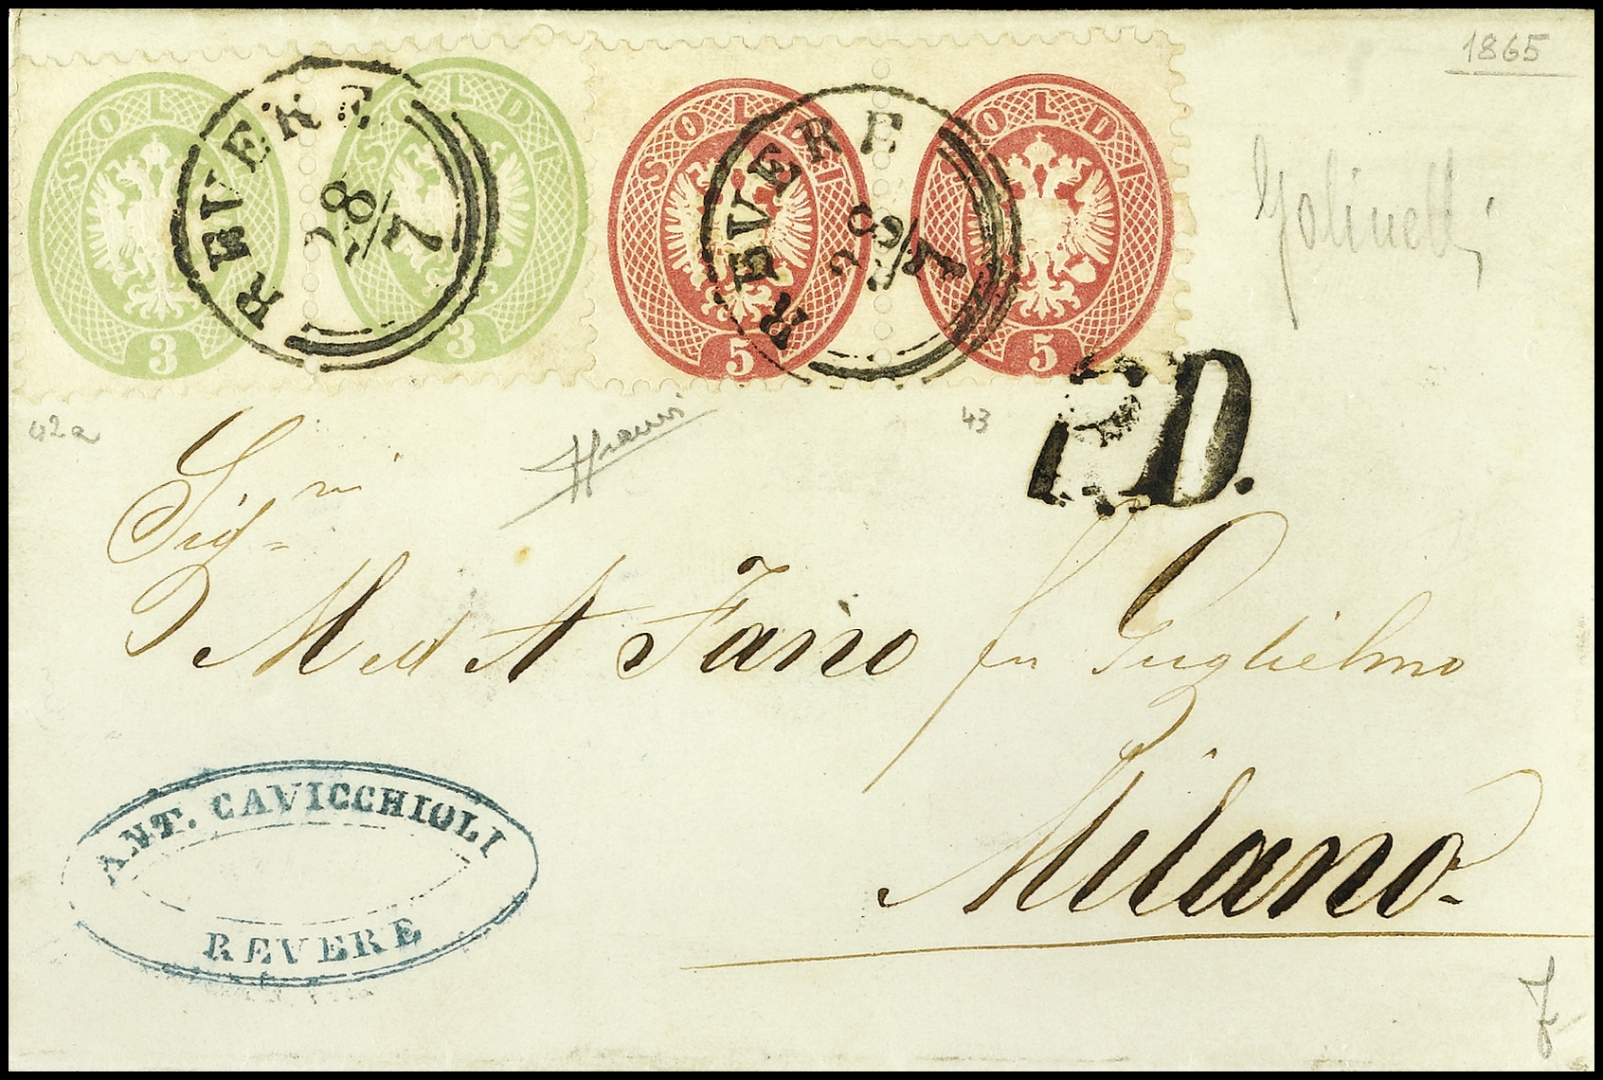 1865
SOLDI SOLDI SOLDI SOLDI
REVERE REVERE
28/7 28/7
3 3 5 5
42a 43
P.D.
Golinelli
Sigri
M ed A Fano fu Guglielmo
Milano
ANT. CAVICCHIOLI
REVERE